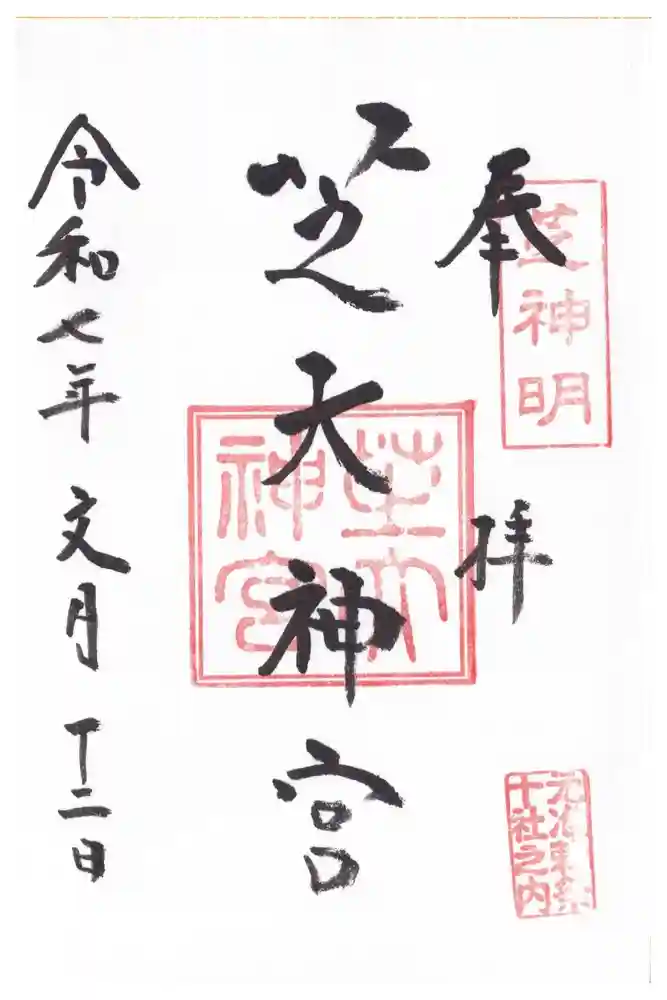 奉拝
芝神明
元准勅祭
十社之内
芝大神宮
芝大
神宮
令和七年文月十二日